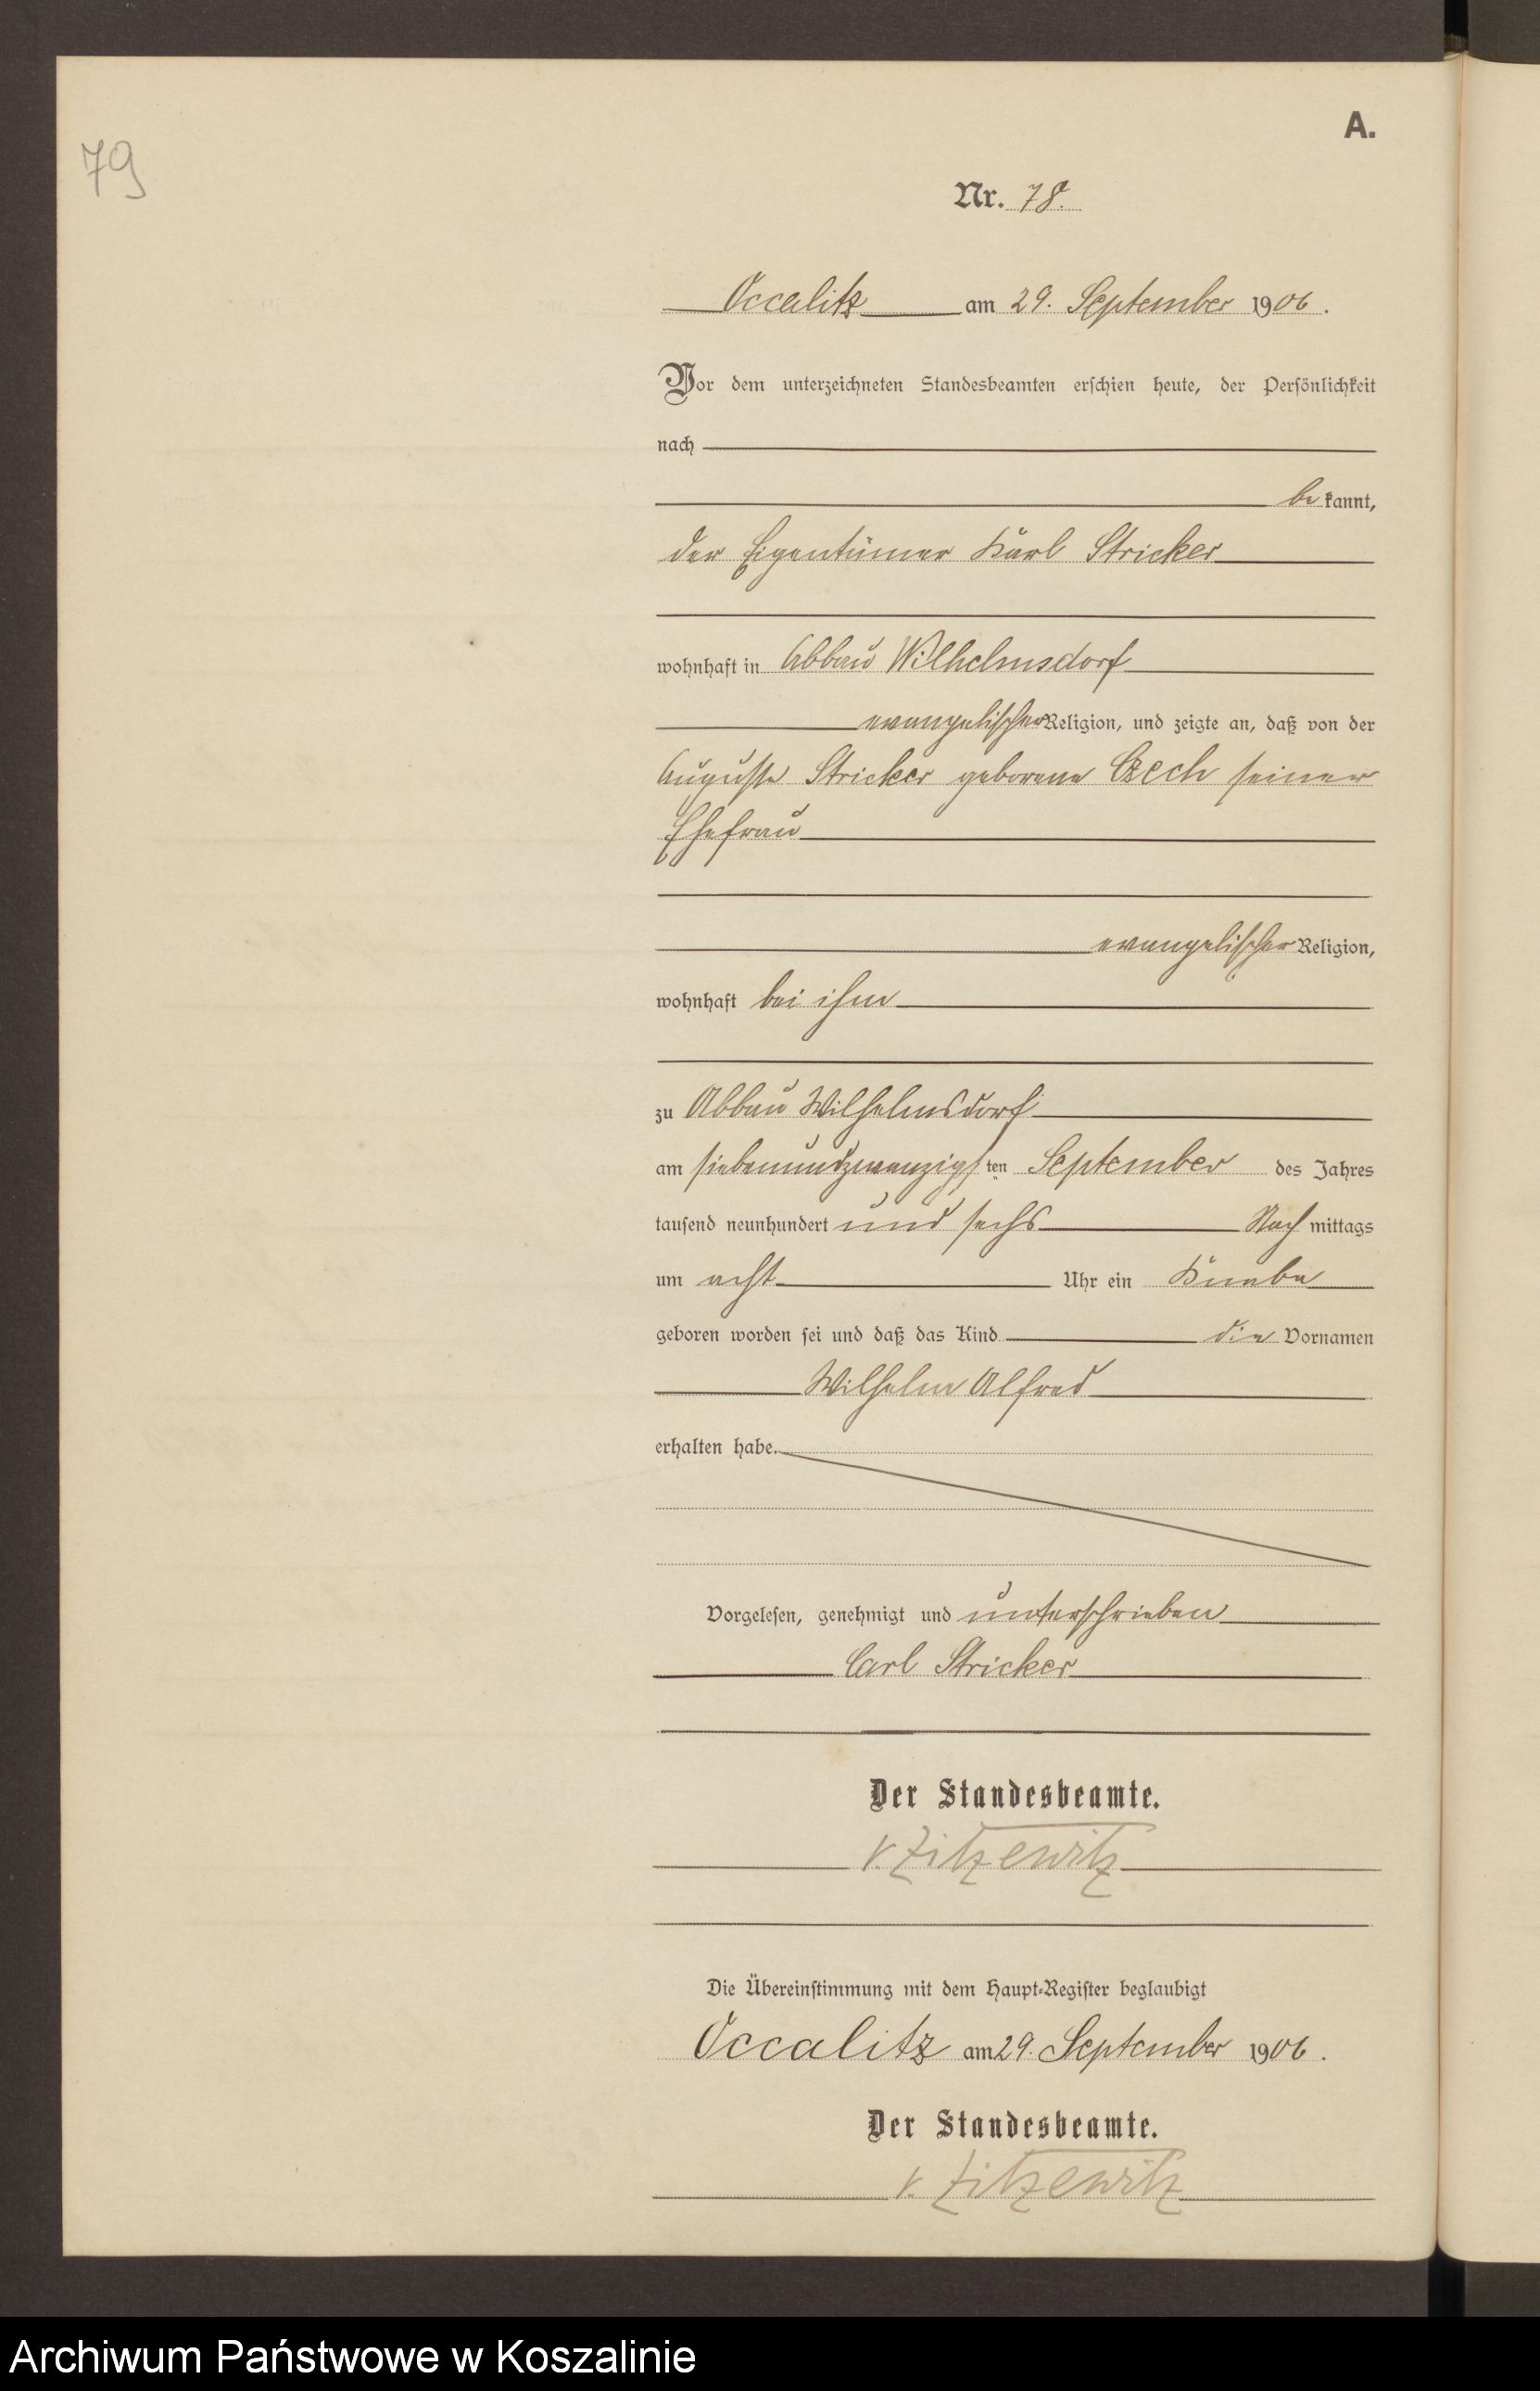 79
A.
Nr. 78.
Occalitz am 29. September 1906.
Vor dem unterzeichneten Standesbeamten erschien heute, der Persönlichkeit
nach
be kannt,
der Eigentümer Karl Stricker
wohnhaft in Abbau Wilhelmsdorf
evangelischer Religion, und zeigte an, daß von der
Auguste Stricker geborene Czech seiner
Ehefrau
evangelischer Religion,
wohnhaft bei ihm
zu Abbau Wilhelmsdorf
am siebenundzwanzigsten September des Jahres
tausend neunhundert und sechs Nach mittags
um acht Uhr ein Knabe
geboren worden sei und daß das Kind die Vornamen
Wilhelm Alfred
erhalten habe.
Vorgelesen, genehmigt und unterschrieben
Carl Stricker
Der Standesbeamte.
v. Zitzewitz
Die Übereinstimmung mit dem Haupt-Register beglaubigt
Occalitz am 29. September 1906.
Der Standesbeamte.
v. Zitzewitz
Archiwum Państwowe w Koszalinie